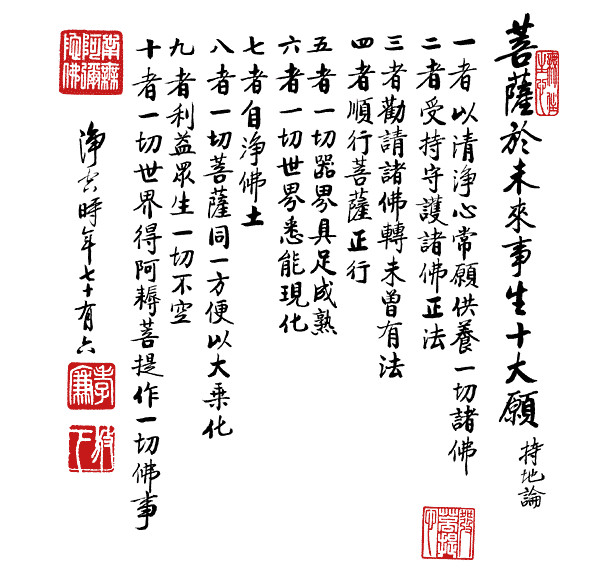 菩薩於未來事生十大願
持地論
一者以清淨心常願供養一切諸佛
二者受持守護諸佛正法
三者勸請諸佛轉未曾有法
四者順行菩薩正行
五者一切器界具足成熟
六者一切世界悉能現化
七者自淨佛土
八者一切菩薩同一方便以大乘化
九者利益眾生一切不空
十者一切世界得阿耨菩提作一切佛事
淨空時年七十有六
南無阿彌陀佛